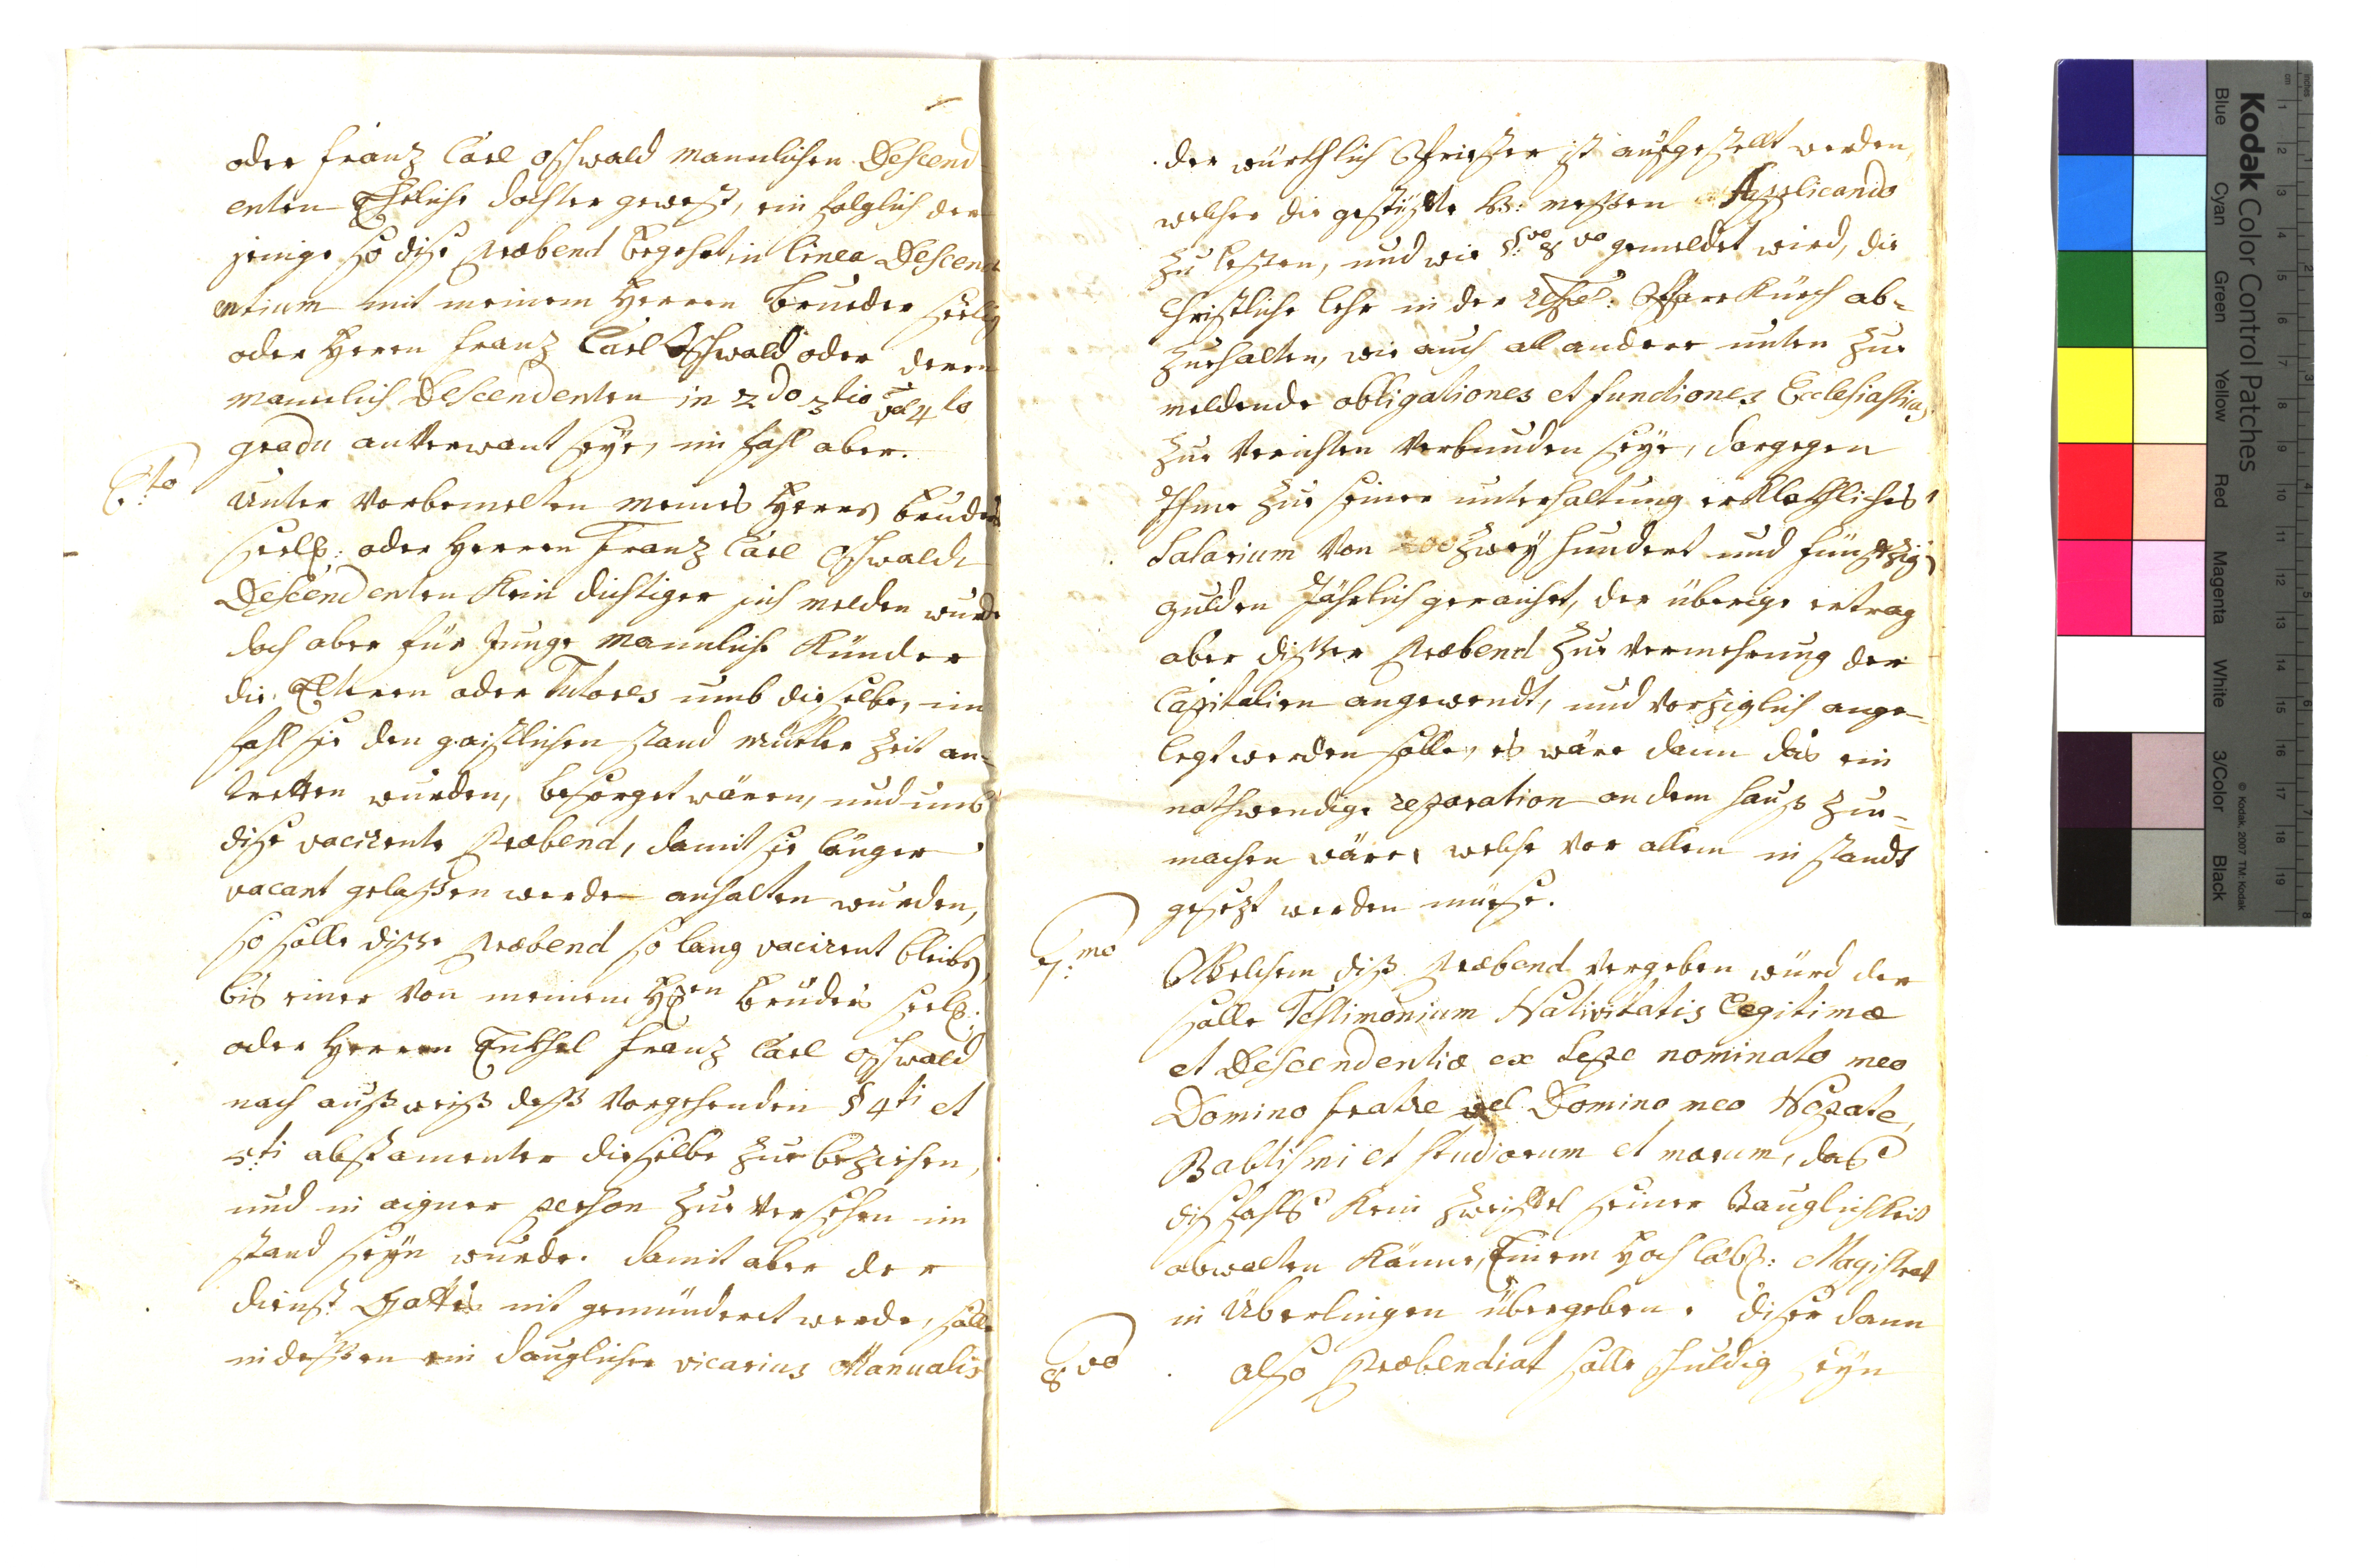 oder Franz Carl Oschwald mannlichen Descend
enten Eheliche dochter gewest, ein folglich der
jenige so dise Præbend begehrt, in linea Descend
entium mit meinem Herren Brueder seelig
oder Herrn Franz Carl Oschwald oder deren
mannlich Descendenten in 2do 3tio vel 4to
gradu anVerwant seye, im fahl aber.
6:to
Unter Vorbemelten meines Herrn Bruders
seel: oder Herren Franz Carl Oschwaldt
Descendenten kein dichtiger sich melden wurde
doch aber für Junge mannliche Künder
die Elteren oder Tutores umb dieselbe, im
fahl sie den gaistlichen stand mitler Zeit an-
tretten wurden, besorget wären, und umb
dise vacirente Præbend, damit sie länger
vacant gelassen werde anhalten wurden,
so solle disse Præbend so lang vacirent bleiben
bis einer Von meinem Hren Bruders seel:
oder Herren Enkhel Franz Carl Oschwald
nach ausweiß dess Vorgehenden § 4ti et
5ti abstamenter dieselbe zue beziehen,
und in aigner person zue Versehen im
stand seyn wurde. damit aber der
dienst Gottes nit gemünderet werde, solle
indessen ein dauglicher vicarius Manualis
der würkhlich Priester ist aufgestellt werden,
welcher die gestüffte H: messen Applicando
zu lesen, und wie §vo 8vo gemeldet wird, die
Christliche lehr in der Pfarrkürch ab-
zuehalten, wie auch all andere unten zue
meldende obligationes et functiones Ecclesiasticas
zue Verichten Verbunden seye, dargegen
Ihme zue seiner unterhaltung erklekhliches
Salarium Von 200 zwey hundert und fünfzig
gulden Jährlich geraicht, der überige ertrag
aber disser Præbend zue Vermehrung der
Capitalien angewendt, und Vorziglich ange-
legt werden solle, es wäre dann das ein
nothwendige reparation an dem hauß zue-
machen wäre, welche Vor allem in standt
gesezt werden müesse.
7:mo
Welchem diß Præbend Vergeben würd der
solle Testimonium Nativitatis legitimæ
et Descendentiæ ex sepe nominato meo
Domino fratre vel Domino meo Nepote,
Babtismi et studiorum et morum, das
dißfahls kein Zweiffel seiner Tauglichkeit
obwalten könne, Einem Hochlobl: Magistrat
in Überlingen übergeben. diser dann
8vo
also Præbendiat solle schuldig seyn
Kodak Color Control Patches
Blue
Cyan
Green
Yellow
Red
Magenta
White
3/Color
Black
© Kodak, 2007 TM: Kodak
cm
1
2
3
4
5
6
7
8
9
10
11
12
13
14
15
16
17
18
19
inches
1
2
3
4
5
6
7
8